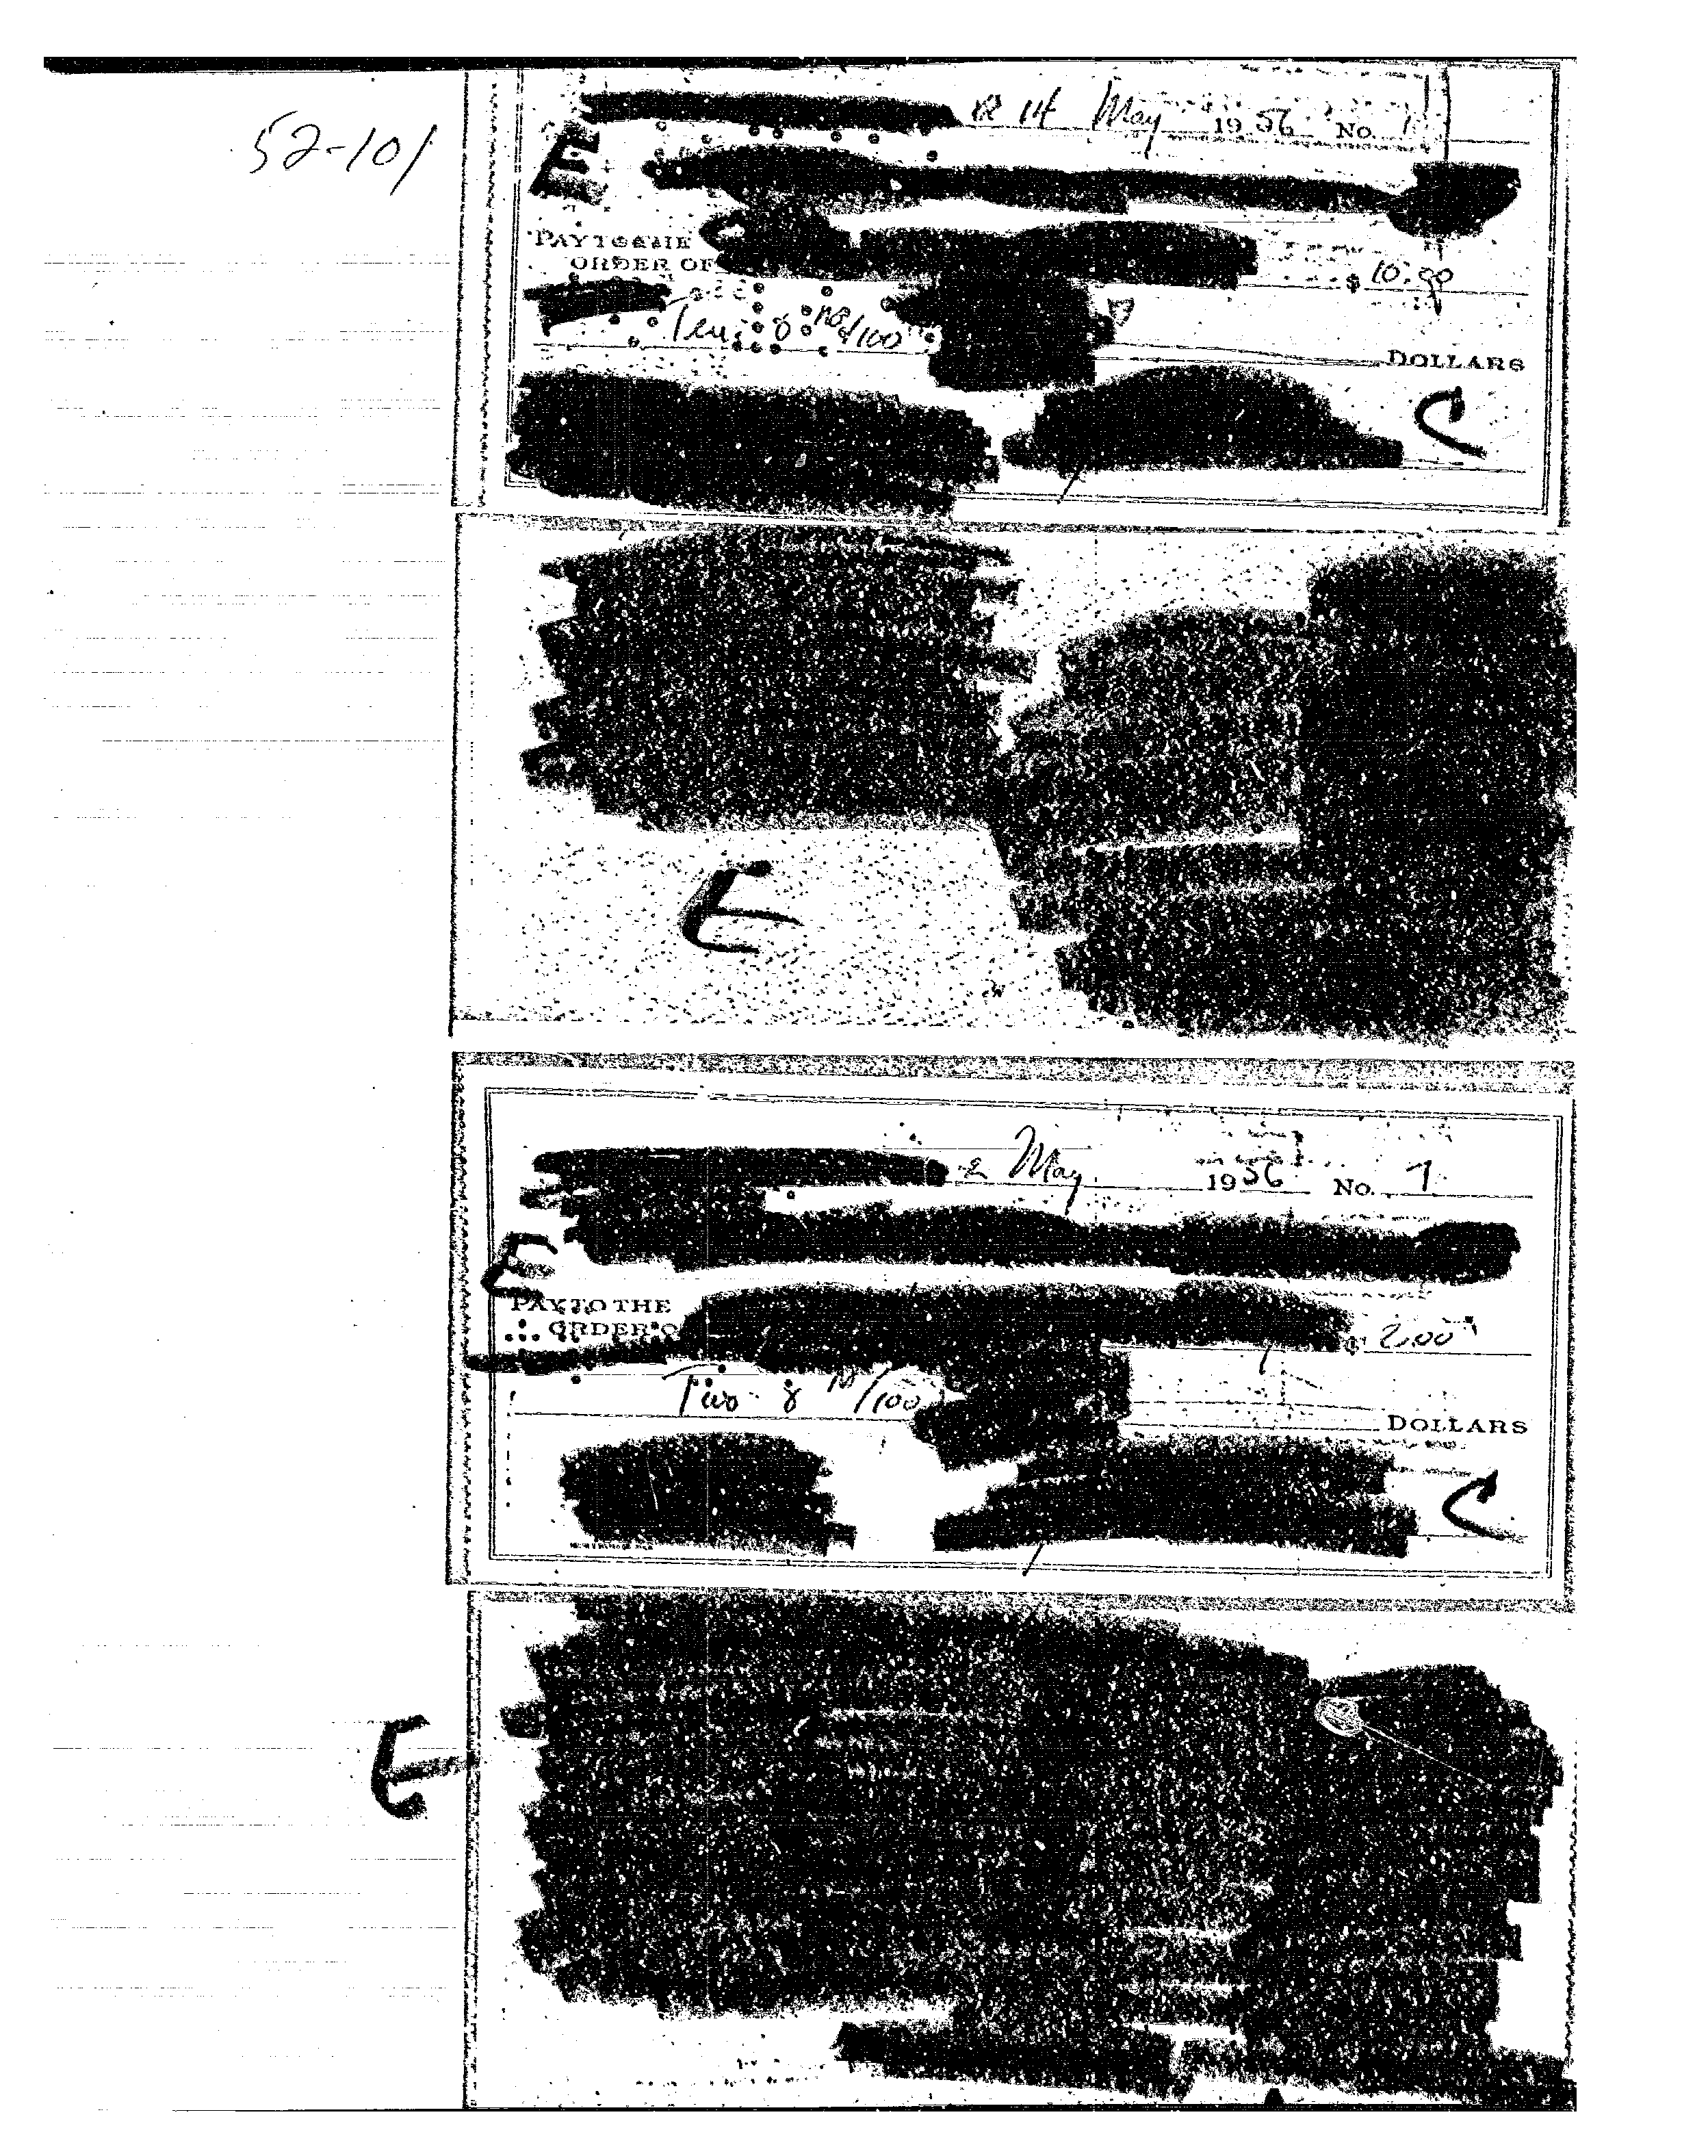 52-101
14 May 1956 No. 1
E
PAY TO THE
ORDER OF
$ 10.00
Ten & no/100
DOLLARS
C
E
2 May 1956 No. 1
E
PAY TO THE
ORDER O
$ 2.00
Two & no/100
DOLLARS
C
E